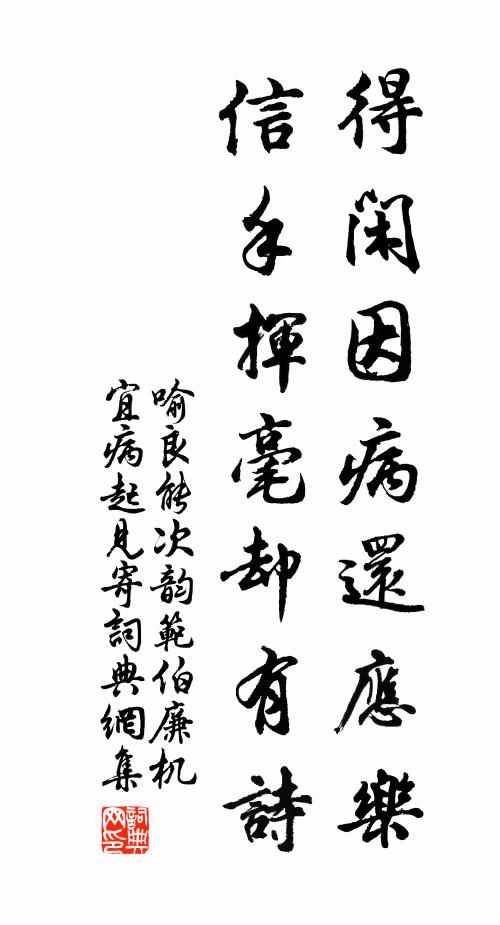 得閑因病還應樂
信手揮毫却有詩
喻良能次韵範伯廉机
宜病起見寄詞典網集
詞典網印